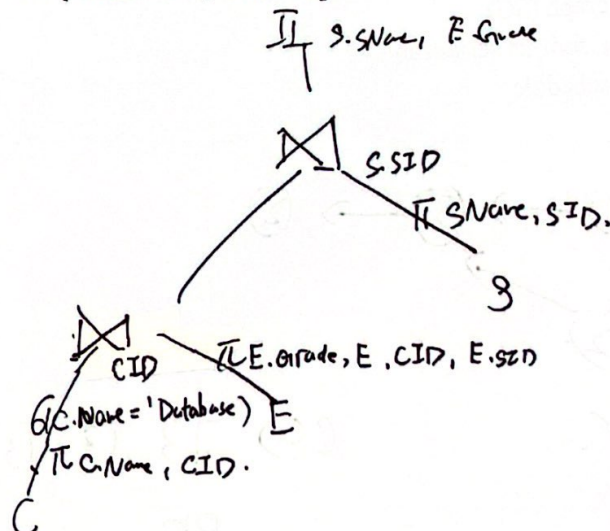 π S.SName, E.Grade
⋈ S.SID
π SName, SID.
S
⋈ CID
π E.Grade, E.CID, E.SID
σ(C.Name='Database)
E
π C.Name, CID.
C